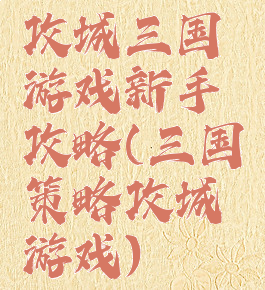 攻城三国
游戏新手
攻略(三国
策略攻城
游戏)